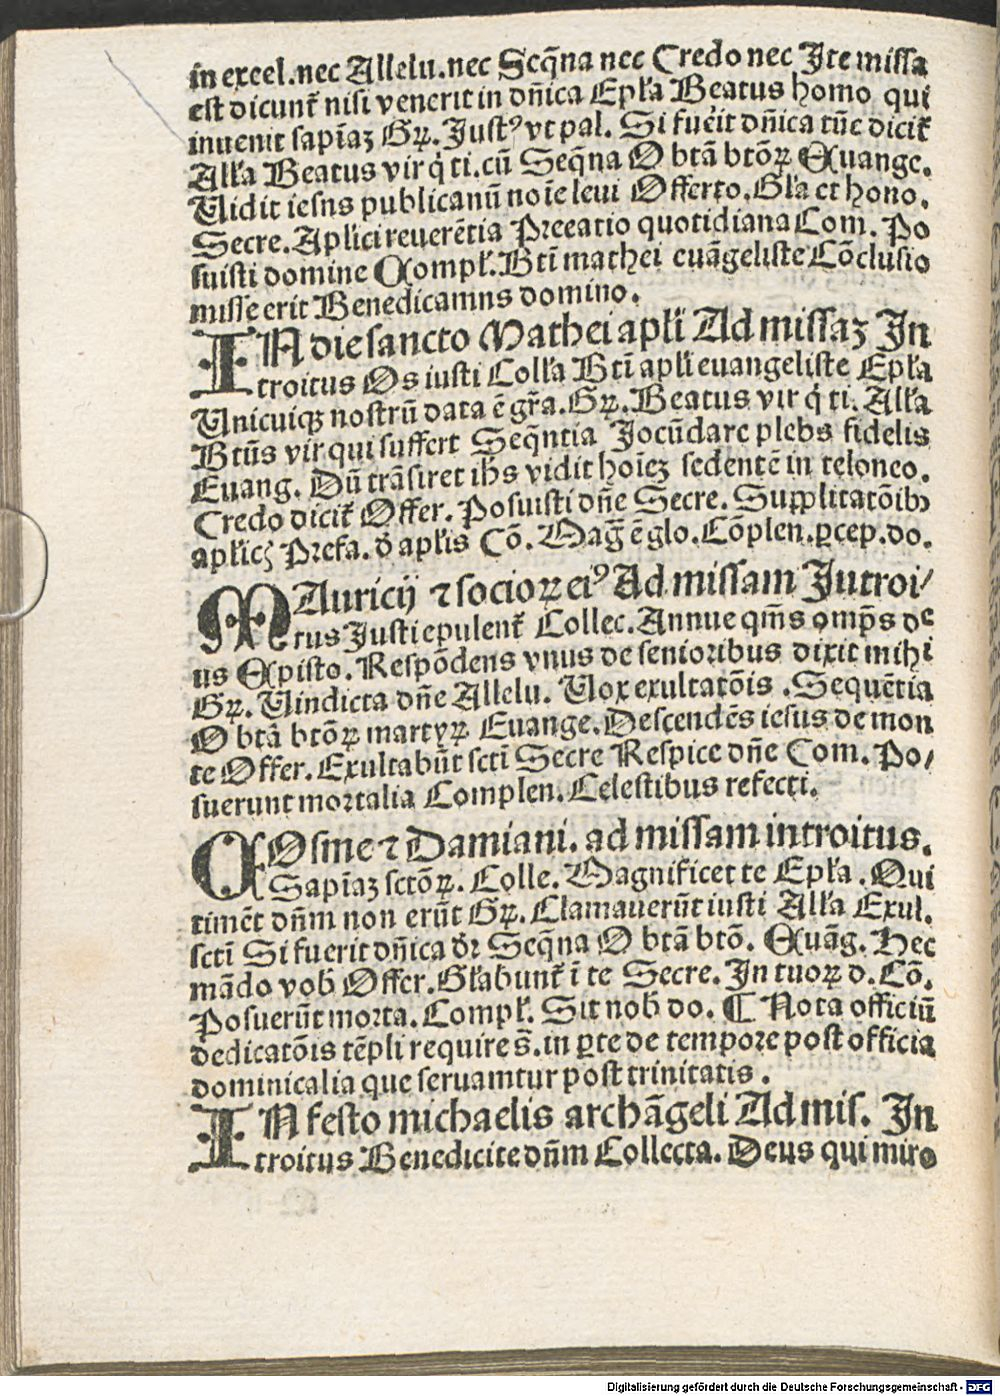 in excel.nec Allelu.nec Seq̄na nec Credo nec Ite missa
est dicunt̄ nisi venerit in dn̄ica Epl'a Beatus homo qui
inuenit sapiāꝫ Gꝝ. Justꝰ vt pal. Si fuěit dn̄ica tūc dicit̄
All'a Beatus vir q̇ ti.cū Seq̄na O btā btōꝝ Euange.
Uidit iesns publicanū noīe leui Offerto.Gl'a et hono.
Secre.Aplici reuerētia Preeatio quotidiana Com. Po
suisti domine Compl'. Btī mathei euāgeliste Cōclusio
misse erit Benedicamns domino.
IN die sancto Mathei apl'i Ad missaꝫ In
troitus Os iusti Coll'a Btī apl'i euangeliste Epl'a
Unicuiqꝫ nostrū data ē gr̄a.Gꝝ.Beatus vir q̇ ti. All'a
Btūs vir qui suffert Seq̄ntia Jocūdare plebs fidelis
Euang. Dū trāsiret ih̄s vidit hoīeꝫ sedentē in teloneo.
Credo dicit̄ Offer. Posuisti dn̄e Secre. Supplicatōibꝰ
apl'icꝭ Prefa. ď apl'is Cō. Maḡ ē glo.Cōplen.ꝑcep.do.
MAuricij ⁊ sociorꝝ eiꝰ Ad missam Jutroi/
tus Justi epulent̄ Collec.Annue qm̄s omp̄s de
us Episto. Respōdens vnus de senioribus dixit mihi
Gꝝ. Uindicta dn̄e Allelu. Uox exultatōis .Sequētia
O btā btōꝝ martyꝝ Euange.Descendēs iesus de mon
te Offer.Exultabūt sctī Secre Respice dn̄e Com. Po/
suerunt mortalia Complen.Celestibus refecti.
COsme ⁊ Damiani. ad missam introitus.
Sapiāꝫ sctōꝝ. Colle. Magnificet te Epl'a .Qui
timēt dn̄m non erūt Gꝝ. Clamauerūt iusti All'a Exul.
sctī Si fuerit dn̄ica ďr Seq̄na O btā btō. Euāg. Hec
mādo vob̄ Offer.Gl'abunt̄ ī te Secre. In tuoꝝ d. Cō.
Posuerūt morta.Compl'. Sit nob̄ do. ¶ Nota officiū
dedicatōis tēpli require s̄.in ꝑte de tempore post officia
dominicalia que seruamtur post trinitatis.
IN festo michaelis archāgeli Ad mis. In
troitus Benedicite dn̄m Collecta. Deus qui miro
Digitalisierung gefördert durch die Deutsche Forschungsgemeinschaft - DFG